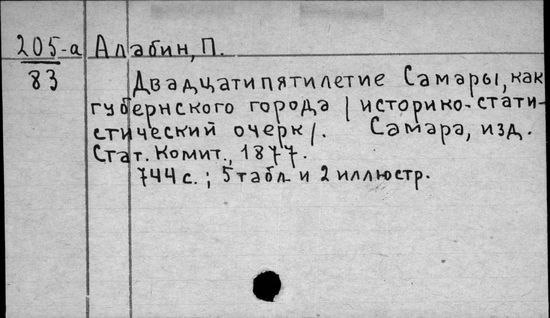 205-а Алабин, П.
83
Двадцатипятилетие Самары, как
губернского города / историко-стати-
стический очерк/. Самара, изд.
Стат. Комит., 1877.
744 с.; 5 табл. и 2 иллюстр.